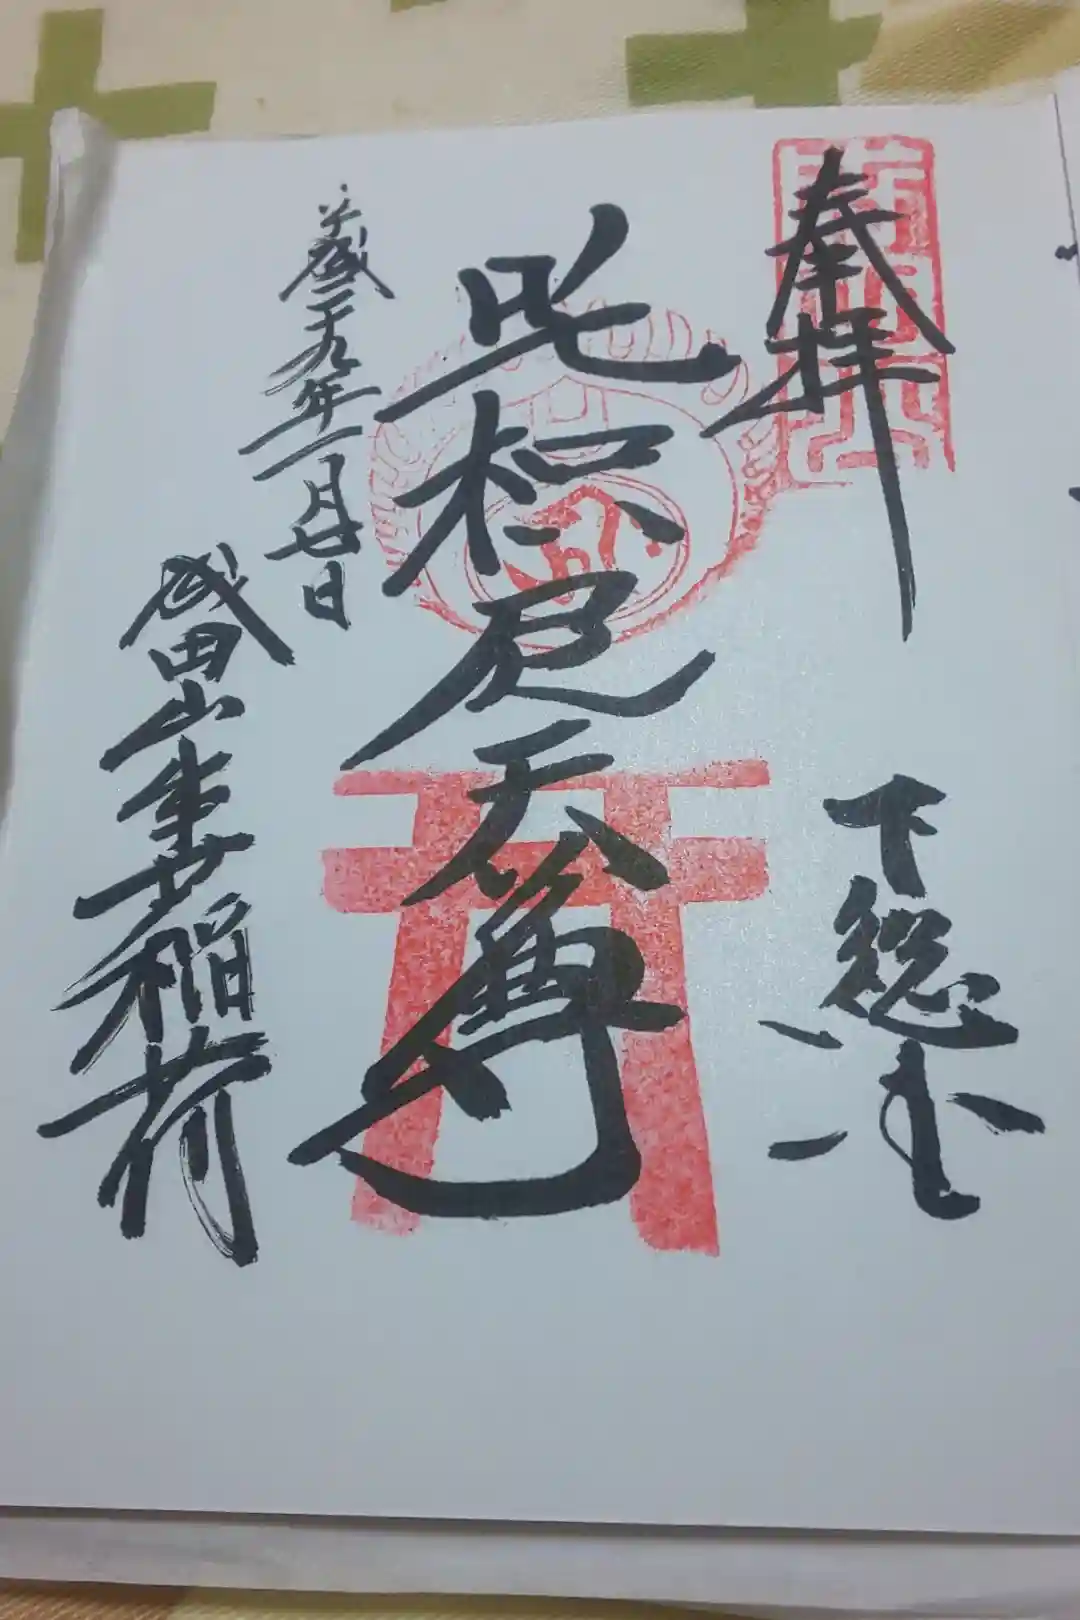 奉拝
下総
吒枳尼天尊
平成二十九年一月廿日
成田山出世稲荷